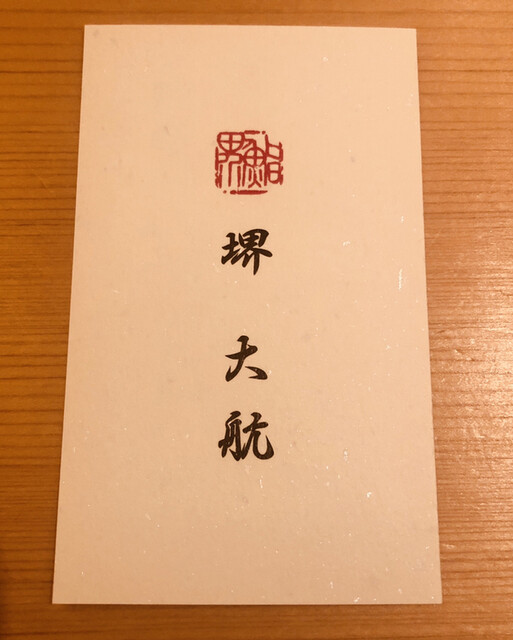 堺 大航